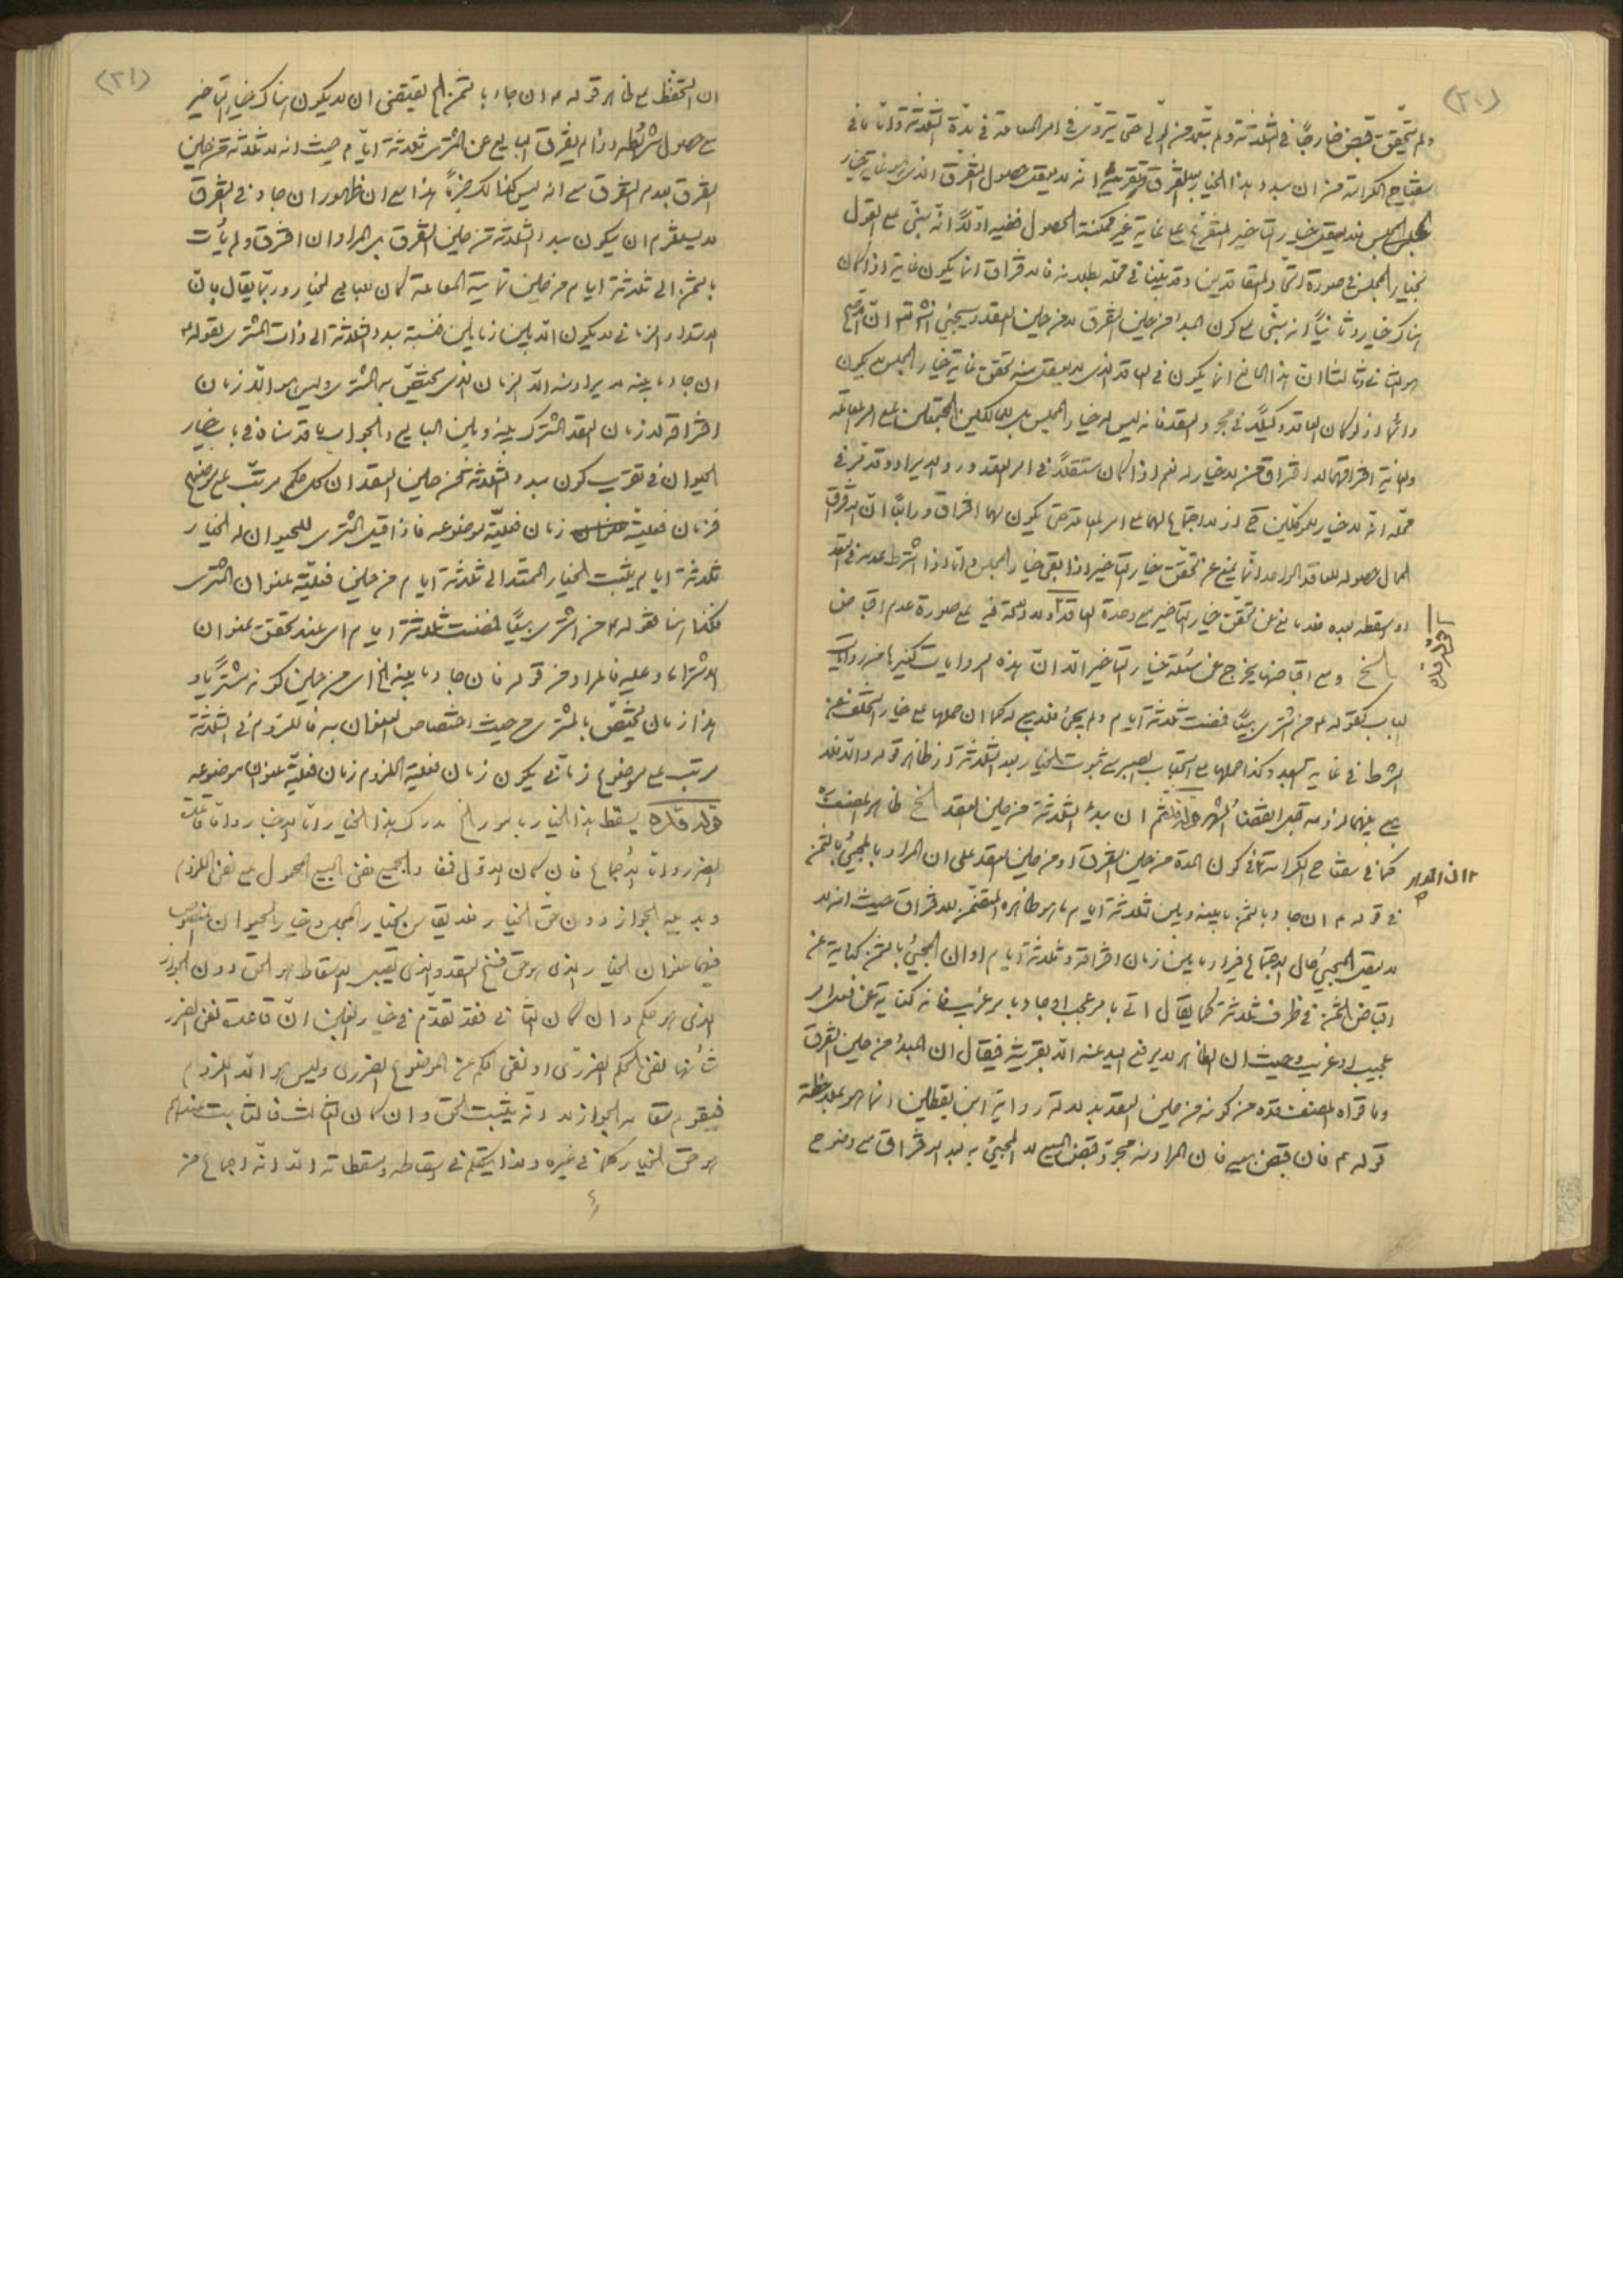 (٢٠)
ولم يتحقق قبض خارجًا في الثلاثة ولم يتعد من الأول حتى يتروى في امر المعاملة في مدة الثلاثة واما ما في
مفتاح الكرامة من ان مبدء هذا الخيار بعد التفرق بقرينة انه لا يعقل حصول التفرق الذى هو غاية خيار
المجلس فلا يعقل خيار التاخير المتفرع على غاية غير ممكنة الحصول ففيه اولًا انه يبتنى على القول
بخيار المجلس في صورة اتحاد المتعاقدين وقد بينا في محله بطلانه فالافتراق انما يكون غاية اذا كان
هناك خيار وثانيًا انه يبتنى على كون المبدء من حين التفرق لا من حين العقد وسيجئ انشاءالله ان الاصح
هو الثاني وثالثا ان هذا المانع انما يكون في العاقد الذى لا يعقل منه تحقق غاية خيار المجلس بل يكون
دائمًا واذا كان العاقد وكيلًا في مجرد العقد فانه ليس له خيار المجلس بل للمالكين المجتمعين على امر المعاملة
والغاية افتراقهما لا افتراق من لا خيار له نعم اذا كان مستقلًا في امر العقد ورد الايراد وقد مر في
محله انه لا خيار للموكلين ح اذ لا اجتماع لهما على امر المعاملة حتى يكون لهما افتراق ورابعًا ان الافتراق
المحال حصوله للعاقد الواحد انما يمنع عن تحقق خيار التاخير اذا بقى خيار المجلس واما اذا اشترط عدمه في العقد
او اسقطه بعده فلا مانع من تحقق خيار التاخير مع وحدة العاقد ولا دلالة فيه على صورة عدم اقباض
الخ ومع اقباضهما يخرج عن مسئلة خيار التاخير الا ان هذه الروايات كغيرها من روايات
الباب كقوله ع من اشترى بيعًا فمضت ثلاثة ايام ولم يجئ فلا بيع له كما ان حملها على خيار التخلف عن
الشرط في غاية البعد وكذا حملها على استحباب الصبر مع ثبوت الخيار بعد الثلاثة اذ ظاهر قوله والا فلا
بيع بينهما لزومه قبل انقضاء الشهر قوله قده ثم ان مبدء الثلاثة من حين العقد الخ ظاهر المصنف ره
كما في مفتاح الكرامة في كون المدة من حين التفرق او من حين العقد على ان المراد بالمجئ بالثمن
في قوله ع ان جاء بالثمن ما بينه وبين ثلاثة ايام ما هو ظاهره المتضمن للافتراق حيث انه لا
يعقل المجئ حال الاجتماع فيراد ما بين زمان افتراقه وثلاثة ايام او ان المجئ بالثمن كناية عن
اقباض الثمن في ظرف ثلاثة كما يقال اتى بامر عجيب او جاء بامر غريب فانه كناية عن فعل امر
عجيب او غريب وحيث ان الظاهر لا يرفع اليد عنه الا بقرينة فيقال ان المبدء من حين التفرق
وما قواه المصنف قده من كونه من حين العقد بدلالة رواية ابن يقطين انما هو بملاحظة
قوله ع فان قبض بيعه فان المراد منه مجرد قبض المبيع لا المجئ به بعد الافتراق مع وضوح
(٢١)
ان التحفظ على ظاهر قوله ع ان جاء بالثمن الخ يقتضى ان لا يكون هناك خيار التاخير
مع حصول شرائطه اذا لم يفرق البايع عن المشترى ثلاثة ايام حيث انه لا ثلاثة من حين
التفرق بعدم التفرق مع انه ليس كذلك ضرورة هذا مع ان ظهور ان جاء في التفرق
لا يستلزم ان يكون مبدء الثلاثة من حين التفرق بل المراد ان افترق ولم يأت
بالثمن الى ثلاثة ايام من حين تمامية المعاملة كان للبايع الخيار وربما يقال بان
الامتداد الزماني لا يكون الا بين زمانين فنسبة مبدء الثلاثة الى ذات المشترى بقوله ع
ان جاء ما بينه لا يراد منه الا الزمان الذى يختص به المشترى وليس هو الا زمان
افتراقه لا زمان العقد المشترك بينه وبين البايع والجواب ما قدمناه في باب خيار
الحيوان في تقريب كون مبدء الثلاثة من حين العقد ان كل حكم مرتب على موضوع
فزمان فعليته زمان فعلية موضوعه فاذا قيل المشترى للحيوان له الخيار
ثلاثة ايام يثبت الخيار الممتد الى ثلاثة ايام من حين فعلية عنوان المشترى
فكذا هنا فقوله ع من اشترى بيعًا فمضت ثلاثة ايام اى عند تحقق عنوان
الاشتراء وعليه فالمراد من قوله فان جاء ما بينه الخ اى من حين كونه مشتريًا و
هذا زمان يختص بالمشترى من حيث اختصاص العنوان به فاللزوم في الثلاثة
مرتب على موضوع زماني يكون زمان فعلية اللزوم زمان فعلية عنوان موضوعه
قوله قده يسقط هذا الخيار بامور الخ مدرك هذا الخيار اما الاخبار واما قاعدة
الضرر واما الاجماع فان كان الاول فمفاد الجميع نفى البيع المحمول على نفى اللزوم
وبدليه الجواز دون حق الخيار فلا يقاس بخيار المجلس وخيار الحيوان المنصوص
فيهما عنوان الخيار الذى هو حق فسخ العقد والذى يقبل الاسقاط هو الحق دون الجواز
الذى هو حكم وان كان الثاني فقد تقدم في خيار الغبن ان قاعدة نفى الضرر
شأنها نفى الحكم الضررى او نفى الحكم عن الموضوع الضررى وليس هو الا اللزوم
فيقوم مقامه الجواز لا انه يثبت الحق وان كان الثالث فالثابت عندهم
هو حق الخيار كما في غيره ولذا يتكلم في اسقاطه ومسقطاته الا انه اجماع من